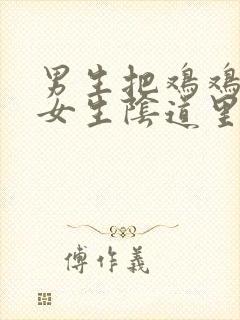 男生把鸡鸡
女生陰道里
傅作義